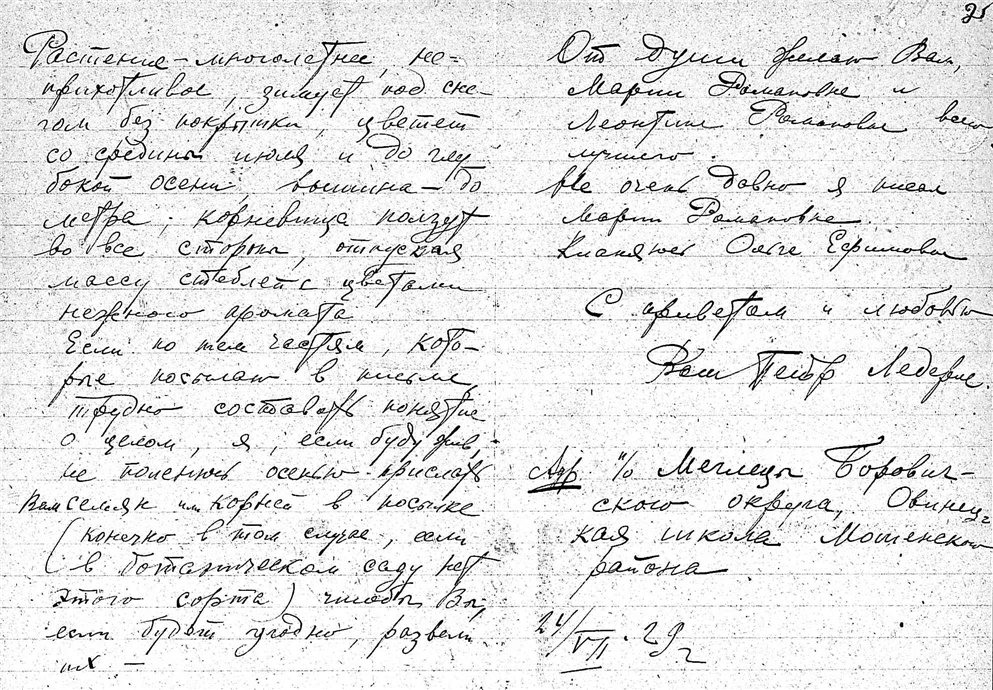 25
Растение – многолетнее, не=
прихотливое, зимует под сне-
гом без покрышки, цветет
со средины июля и до глу-
бокой осени, вышина – до
метра; корневища ползут
во все стороны, отпуская
массу стеблей с цветами
нежного аромата
Если по тем частям, кото-
рые посылаю в письме
трудно составить понятие
о целом, я, если буду жив,
не поленюсь осенью прислать
Вам семян или корней в посылке
(конечно в том случае, если
в ботаническом саду нет
этого сорта) чтобы Вы,
если будет угодно, развели
их –
От души желаю Вам,
Марии Романовне и
Леонтине Романовне всего
лучшего.
Не очень давно я писал
Марии Романовне.
Кланяюсь Ольге Ефимовне
С приветом и любовью
Ваш Петр Ледерле.
Адр п/о Меглецы Борович-
ского округа, Овинец-
кая школа Мошенского
района
24/VII . 29 г